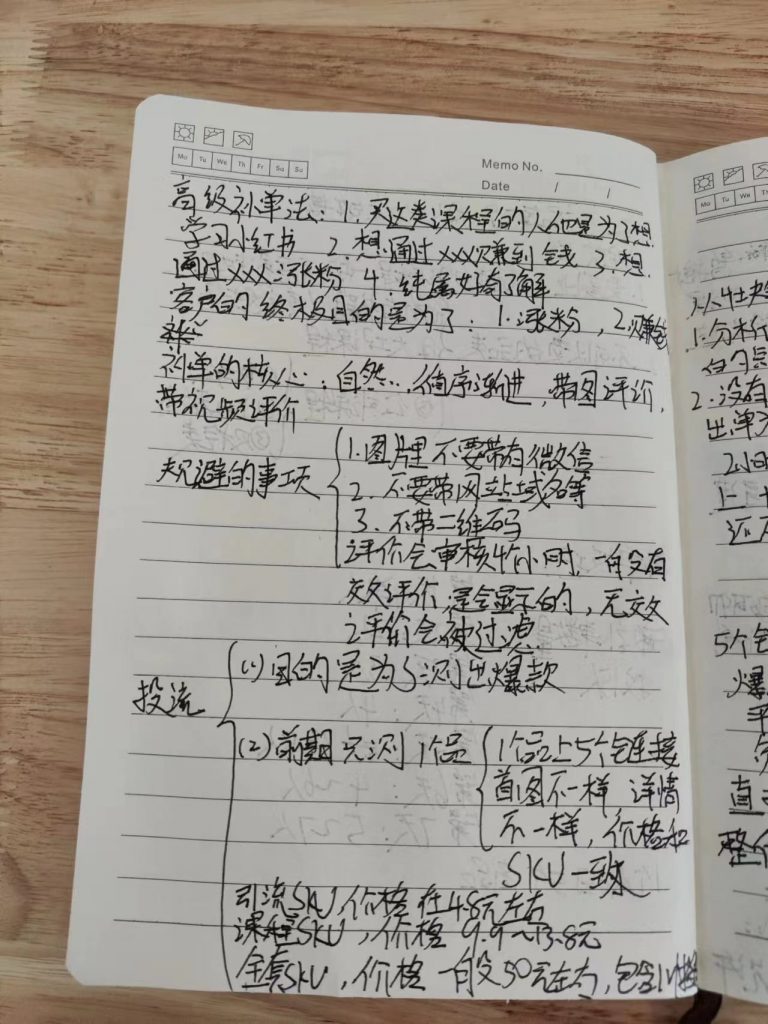 Mo Tu We Th Fr Sa Su
Memo No.
Date / /
高级补单法：1. 买这类课程的人他是为了想
学习小红书 2. 想通过xxx赚到钱 3. 想
通过xxx涨粉 4. 纯属好奇了解
客户的终极目的是为了：1. 涨粉，2. 赚钱
补单的核心：自然..，循序渐进，带图评价，
带视频评价
规避的事项
1. 图片里不要带有微信
2. 不要带网站域名等
3. 不带二维码
评价会审核4个小时，一般没有
效评价，是会显示的，无效
评价会被过滤
投流
(1) 目的是为了测出爆款
(2) 前期先测1个品
1个品上5个链接
首图不一样 详情
不一样，价格和
SKU一致
引流SKU，价格在4.8元左右
课程SKU，价格9.9~13.8元
全套SKU，价格一般50元左右，包含
Mo Tu We Th
1. 分析
2. 没有
出单
2小时
5个
爆
直
整个